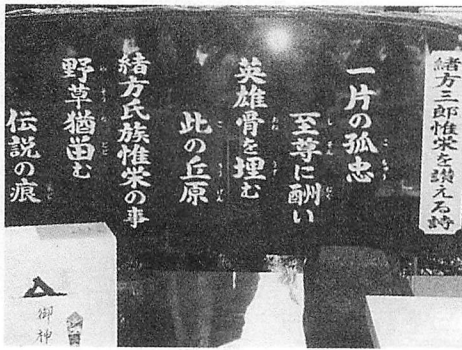 緒方三郎惟栄を讃える詩
一片の孤忠
至尊に酬い
英雄骨を埋む
此の丘原
緒方氏族惟栄の事
野草猶留む
伝説の痕
御神